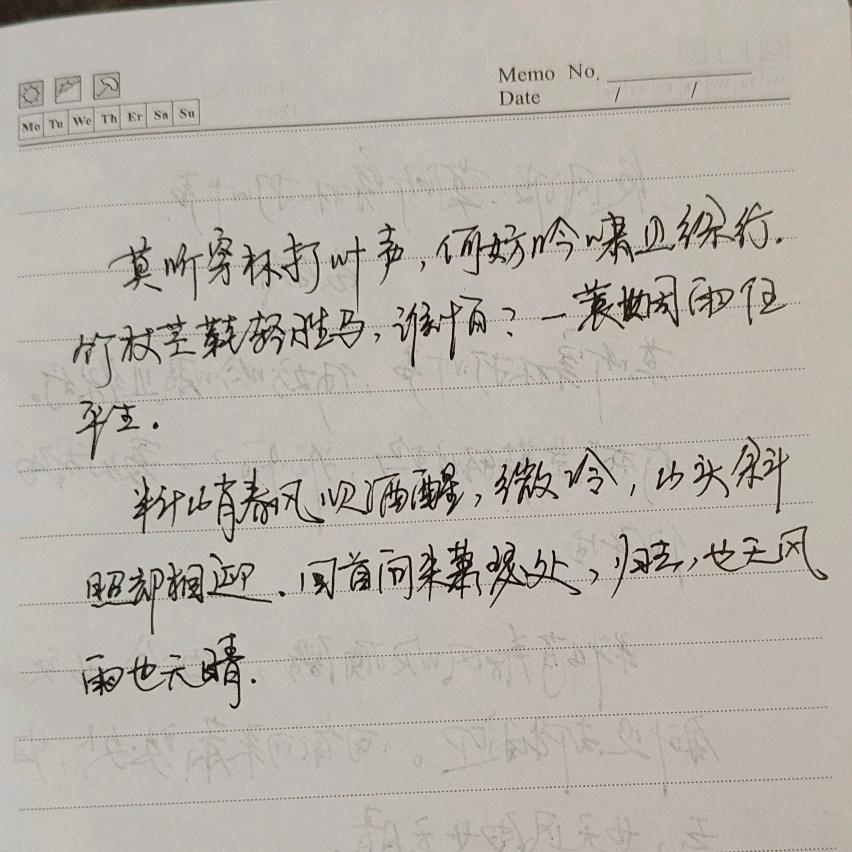 Memo No.
Date / /
Mo Tu We Th Er Sa Su
莫听穿林打叶声,何妨吟啸且徐行.
竹杖芒鞋轻胜马,谁怕?一蓑烟雨任
平生.
料峭春风吹酒醒,微冷,山头斜
照却相迎.回首向来萧瑟处,归去,也无风
雨也无晴.